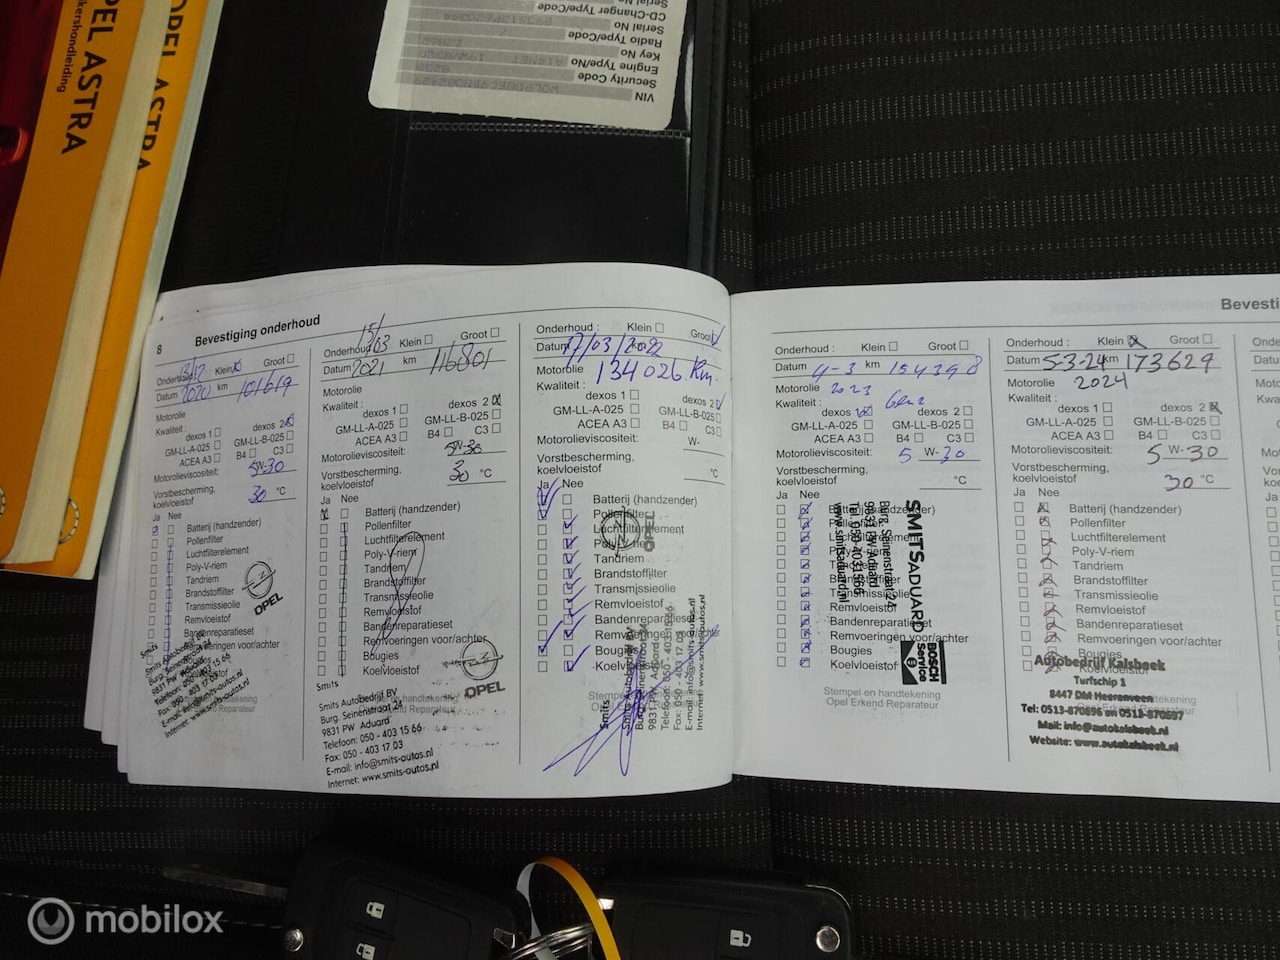 OPEL ASTRA
PEL ASTRA
ikershandleiding
CD-Changer Type/Code
Serial No
Radio Type/Code
Key No
Engine Type/No
Security Code
VIN
8 Bevestiging onderhoud
Onderhoud Klein Groot
Datum 2020 km 101619
Motorolie
Kwaliteit :
dexos 1 dexos 2
GM-LL-A-025 GM-LL-B-025
ACEA A3 B4 C3
Motorolieviscositeit: 5W-30
Vorstbescherming,
koelvloeistof 30 °C
Ja Nee
Batterij (handzender)
Pollenfilter
Luchtfilterelement
Poly-V-riem
Tandriem
Brandstoffilter
Transmissieolie
Remvloeistof
Bandenreparatieset
OPEL
Smits Autobedrijf BV
Burg. Seinenstraat 24
9831 PW Aduard
Telefoon: 050 - 403 15 66
Fax: 050 - 403 17 03
E-mail: info@smits-autos.nl
Internet: www.smits-autos.nl
15/03
Onderhoud Klein Groot
Datum 2021 km 116801
Motorolie
Kwaliteit :
dexos 1 dexos 2
GM-LL-A-025 GM-LL-B-025
ACEA A3 B4 C3
Motorolieviscositeit: 5W-30
Vorstbescherming,
koelvloeistof 30 °C
Ja Nee
Batterij (handzender)
Pollenfilter
Luchtfilterelement
Poly-V-riem
Tandriem
Brandstoffilter
Transmissieolie
Remvloeistof
Bandenreparatieset
Remvoeringen voor/achter
Bougies
Koelvloeistof
OPEL
Smits
Smits Autobedrijf BV
Burg. Seinenstraat 24
9831 PW Aduard
Telefoon: 050 - 403 15 66
Fax: 050 - 403 17 03
E-mail: info@smits-autos.nl
Internet: www.smits-autos.nl
Onderhoud : Klein Groot
Datum 17/03/2022 km
Motorolie 134026 Km
Kwaliteit :
dexos 1 dexos 2
GM-LL-A-025 GM-LL-B-025
ACEA A3 B4 C3
Motorolieviscositeit: W-
Vorstbescherming,
koelvloeistof °C
Ja Nee
Batterij (handzender)
Pollenfilter
Luchtfilterelement
Poly-V-riem
Tandriem
Brandstoffilter
Transmissieolie
Remvloeistof
Bandenreparatieset
Remvoeringen voor/achter
Bougies
Koelvloeistof
OPEL
Stempel en handtekening
Smits
Smits Autobedrijf BV
Burg. Seinenstraat 24
9831 PW Aduard
Telefoon: 050 - 403 15 66
Fax: 050 - 403 17 03
E-mail: info@smits-autos.nl
Internet: www.smits-autos.nl
Bevesti
Onderhoud : Klein Groot
Datum 4-3 km 154398
Motorolie 2023
Kwaliteit :
dexos 1 dexos 2
GM-LL-A-025 GM-LL-B-025
ACEA A3 B4 C3
Motorolieviscositeit: 5 W-30
Vorstbescherming,
koelvloeistof °C
Ja Nee
Batterij (handzender)
Pollenfilter
Luchtfilterelement
Poly-V-riem
Tandriem
Brandstoffilter
Transmissieolie
Remvloeistof
Bandenreparatieset
Remvoeringen voor/achter
Bougies
Koelvloeistof
SMITS ADUARD
Burg. Seinenstraat 24
9831 PW Aduard
www.smitsaduard.nl
BOSCH
Service
Stempel en handtekening
Opel Erkend Reparateur
Onderhoud : Klein Groot
Datum 5-3-24 km 173629
Motorolie 2024
Kwaliteit :
dexos 1 dexos 2
GM-LL-A-025 GM-LL-B-025
ACEA A3 B4 C3
Motorolieviscositeit: 5 W-30
Vorstbescherming,
koelvloeistof 30 °C
Ja Nee
Batterij (handzender)
Pollenfilter
Luchtfilterelement
Poly-V-riem
Tandriem
Brandstoffilter
Transmissieolie
Remvloeistof
Bandenreparatieset
Remvoeringen voor/achter
Bougies
Koelvloeistof
Autobedrijf Kalsbeek
Turfschip 1
8447 DM Heerenveen
Tel: 0513-870696 en 0513-870697
Mail: info@autokalsbeek.nl
Website: www.autokalsbeek.nl
Ond
Datu
Moto
Kwal
mobilox